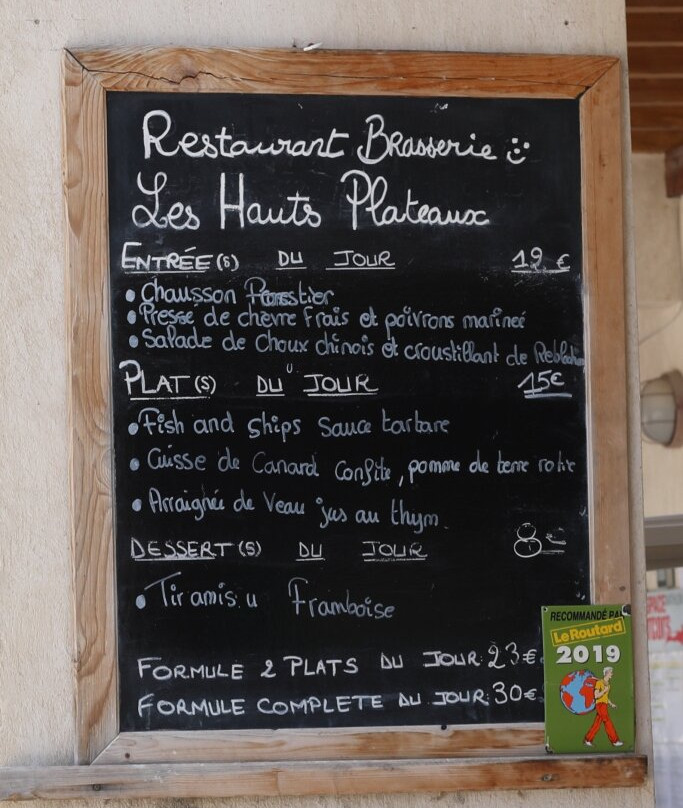 Restaurant Brasserie
Les Hauts Plateaux
ENTRÉE(S) DU JOUR 12 €
• Chausson Forestier
• Presse de chèvre frais et poivrons marineé
• Salade de choux chinois et croustillant de Reblochon
PLAT(S) DU JOUR 15€
• Fish and ships sauce tartare
• Cuisse de Canard confite, pomme de terre rotie
• Arraignée de Veau jus au thym
DESSERT(S) DU JOUR 8€
• Tiramisu Framboise
FORMULE 2 PLATS DU JOUR: 23€
FORMULE COMPLETE DU JOUR: 30€
RECOMMANDÉ PAR
Le Routard
2019